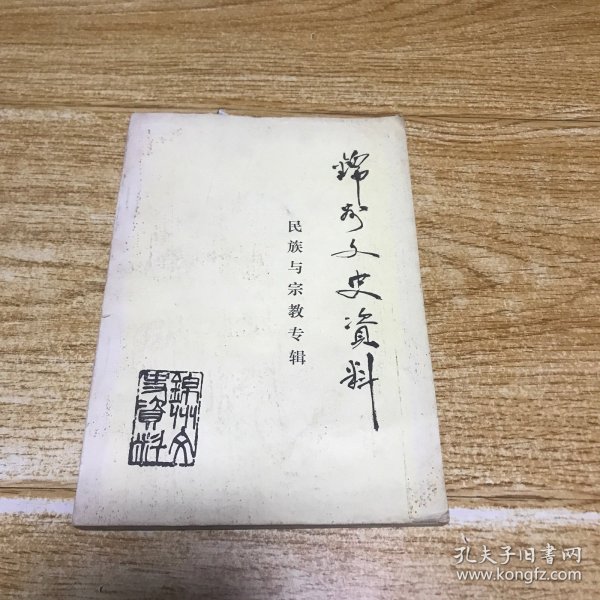 錦州文史資料
民族与宗教专辑
錦州文
史資料
孔夫子旧書网
www.kongfz.com